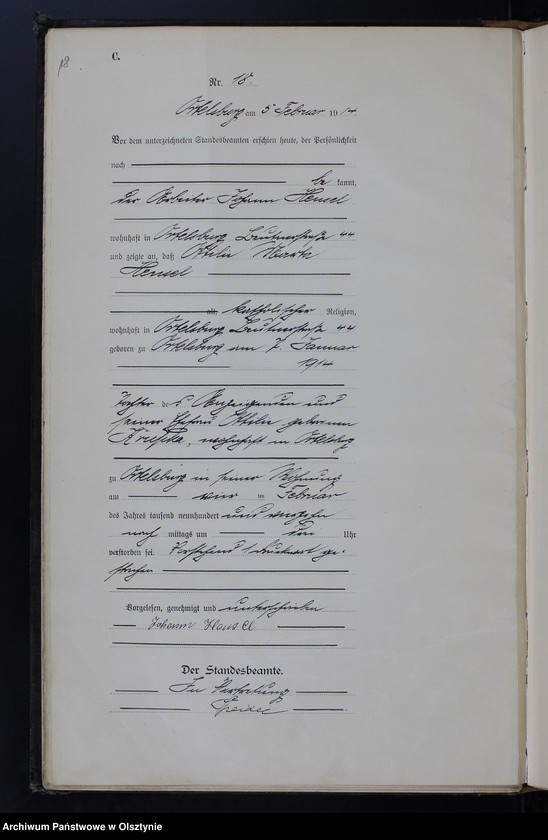 18
C.
Nr. 18
Ortelsburg am 5 Februar 1914
Vor dem unterzeichneten Standesbeamten erschien heute, der Persönlichkeit
nach
be kannt,
der Arbeiter Johann Hensel
wohnhaft in Ortelsburg 44
und zeigte an, daß Ottilie Martha
Hensel
alt, katholischer Religion,
wohnhaft in Ortelsburg 44
geboren zu Ortelsburg am 7. Januar
1914
Tochter des Anzeigenden und
seiner Ehefrau Ottilie geborenen
wohnhaft in Ortelsburg
zu Ortelsburg in seiner Wohnung
am vier im Februar
des Jahres tausend neunhundert und vierzehn
nach mittags um Uhr
verstorben sei. Vorstehend 1 Druckwort ge-
strichen
Vorgelesen, genehmigt und unterschrieben
Johann Hensel
Der Standesbeamte.
In Vertretung
Archiwum Państwowe w Olsztynie